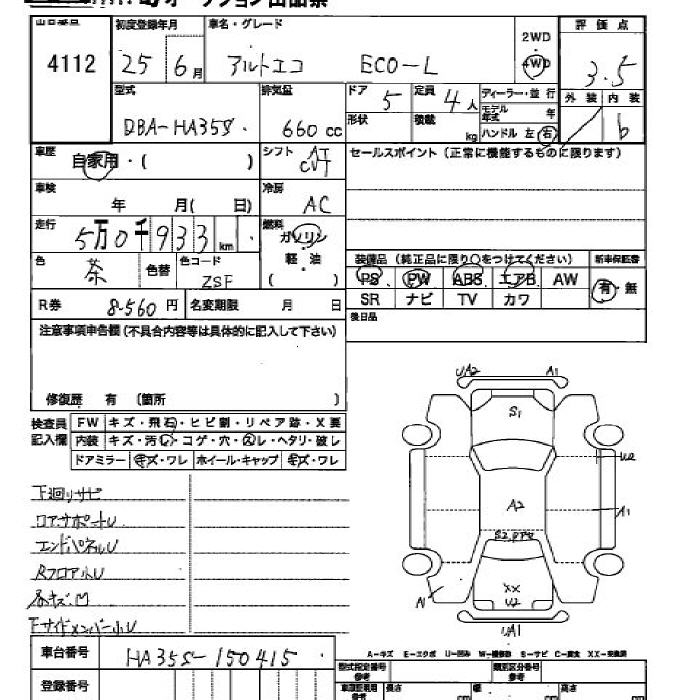 オークション出品票
出品番号 初度登録年月 車名・グレード 2WD 評価点
4112 25 6月 アルトエコ ECO-L 4WD 3.5
型式 排気量 ドア 5 定員 4人 ディーラー・並行 外装 内装
DBA-HA35S 660cc 形状 積載 kg モデル年式 年 b
ハンドル 左 右
車歴 自家用・( ) シフト AT CVT セールスポイント(正常に機能するものに限ります)
車検 年 月( 日) 冷房 AC
走行 5万0千933km 燃料 ガソリン
色 茶 色替 色コード ZSF 軽・油 ( )
装備品(純正品に限り○をつけてください) 新車保証書
PS PW ABS エアB AW 有・無
SR ナビ TV カワ
R券 8.560円 名変期限 月 日
後日品
注意事項申告欄(不具合内容等は具体的に記入して下さい)
修復歴 有 (箇所 )
検査員記入欄 FW キズ・飛石・ヒビ割・リペア跡・X要
内装 キズ・汚し・コゲ・穴・スレ・ヘタリ・破レ
ドアミラー キズ・ワレ ホイール・キャップ キズ・ワレ
UA2 A1
S1
U2
A2 A1
S2
XX
U2
UA1
下廻りサビ
コアサポートU
エンドパネルU
RフロアルU
Fサイドメンバー小U
A-キズ E-エクボ U-凹み W-補修跡 S-サビ C-腐食 XX-交換済
車台番号 HA35S-150415
登録番号
型式指定番号 参考 類別区分番号 参考
長さ cm 幅 cm 高さ cm